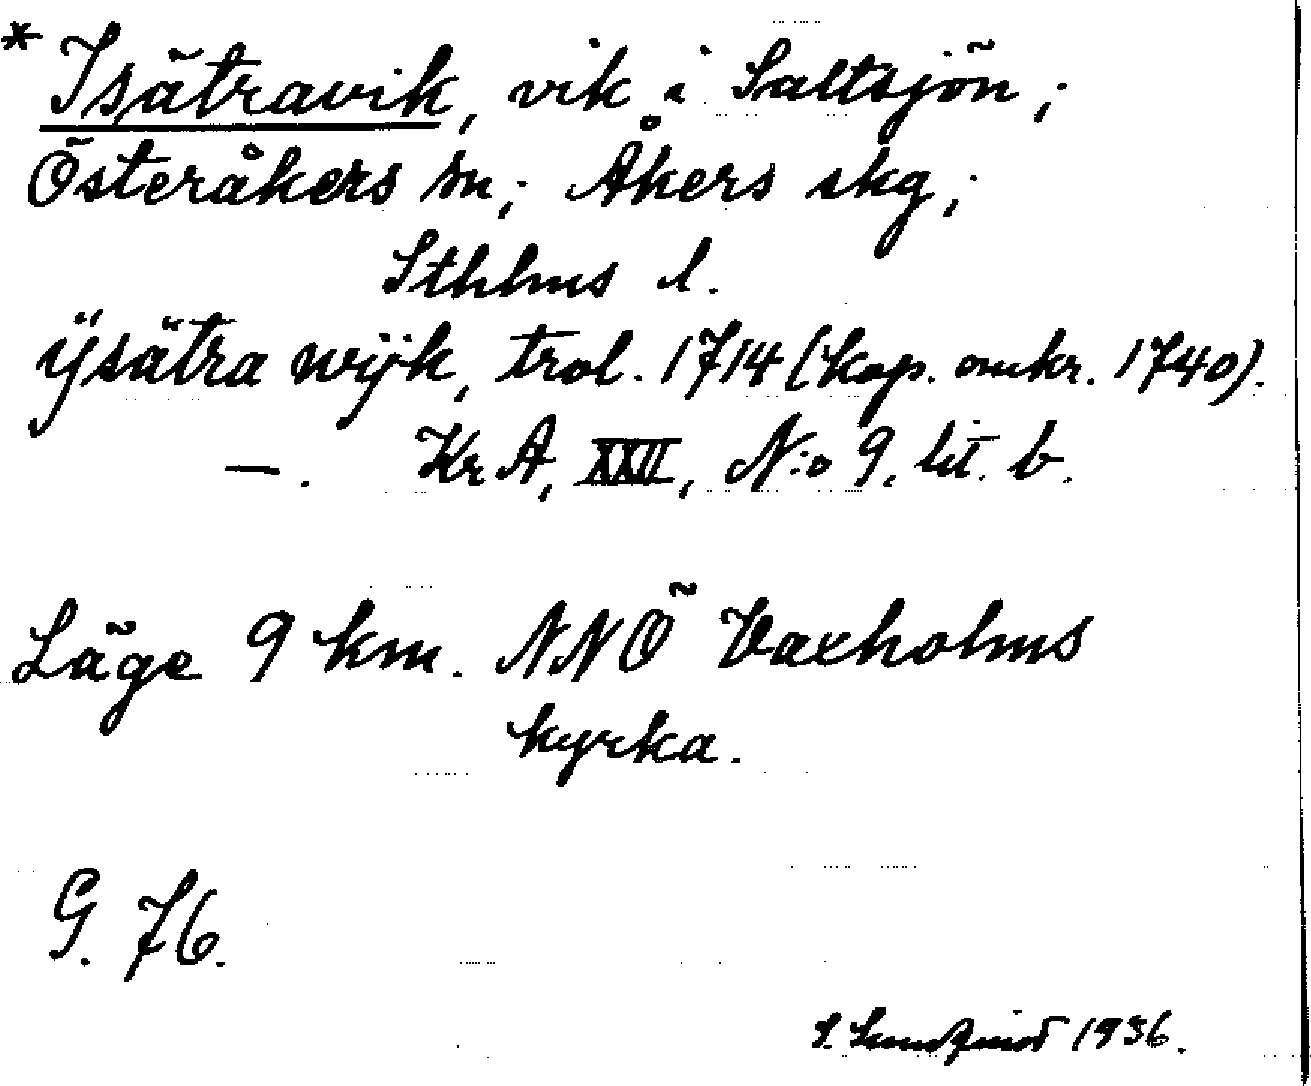 * Isätravik, vik i Saltsjön;
Österåkers sn; Åkers skg;
Sthlms l.
ÿsätra wijk, trol. 1714 (kop. omkr. 1740).
—. Kr A, XXII, N:o 9. lit. b.
Läge 9 km. NNÖ Vaxholms
kyrka.
G. 76.
1936.